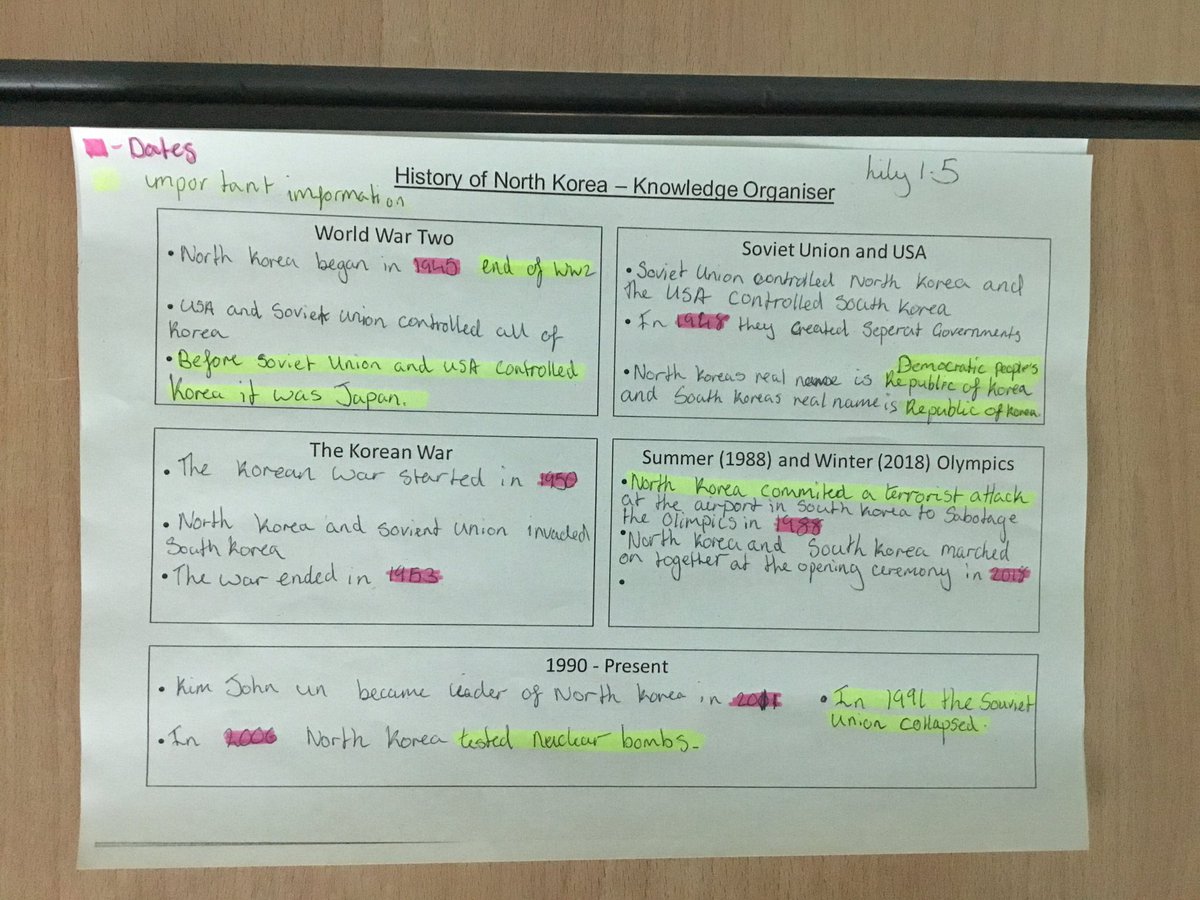 - Dates
important information
History of North Korea – Knowledge Organiser
Lily 1.5
World War Two
• North Korea began in 1945 end of WW2
• USA and Soviet Union controlled all of
Korea
• Before Soviet Union and USA controlled
Korea it was Japan.
Soviet Union and USA
• Soviet Union controlled North Korea and
the USA controlled South Korea
• In 1948 they created Seperat Governments
• North Koreas real name is Democratic people's
Republic of Korea
and South Koreas real name is Republic of Korea.
The Korean War
• The Korean War started in 1950
• North Korea and sovient Union invaded
South Korea
• The war ended in 1953
Summer (1988) and Winter (2018) Olympics
• North Korea commited a terrorist attack
at the airport in South Korea to Sabotage
the Olimpics in 1988
• North Korea and South Korea marched
on together at the opening ceremony in 2018
•
1990 - Present
• Kim John un became leader of North Korea in 2011
• In 2006 North Korea tested nuclear bombs.
• In 1991 the Souviet
Union collapsed.